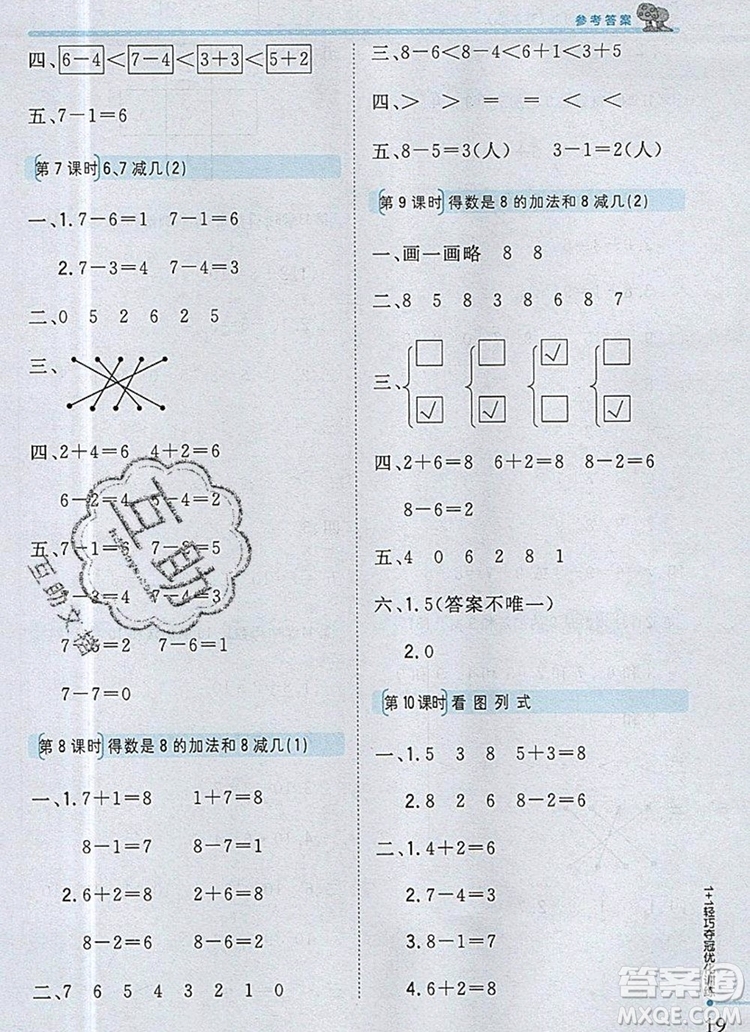 参考答案
四、6－4＜7－4＜3＋3＜5＋2
五、7－1＝6
第7课时 6、7减几(2)
一、1.7－6＝1 7－1＝6
2.7－3＝4 7－4＝3
二、0 5 2 6 2 5
三、
四、2＋4＝6 4＋2＝6
6－2＝4 6－4＝2
五、7＋1＝8 7－2＝5
7－4＝3
7－5＝2 7－6＝1
7－7＝0
第8课时 得数是8的加法和8减几(1)
一、1.7＋1＝8 1＋7＝8
8－1＝7 8－7＝1
2.6＋2＝8 2＋6＝8
8－2＝6 8－6＝2
二、7 6 5 4 3 2 1 0
三、8－6＜8－4＜8－2＜6＋2
四、＞ ＞ ＝ ＝ ＜ ＜
五、8－5＝3(人) 3－1＝2(人)
第9课时 得数是8的加法和8减几(2)
一、画一画略 8 8
二、8 5 8 3 8 6 8 7
三、□ □ ☑ □
☑ ☑ □ ☑
四、2＋6＝8 6＋2＝8 8－2＝6
8－6＝2
五、4 0 6 2 8 1
六、1.5(答案不唯一)
2.0
第10课时 看图列式
一、1.5 3 8 5＋3＝8
2.8 2 6 8－2＝6
二、1.4＋2＝6
2.7－4＝3
3.8－1＝7
4.6＋2＝8
1＋1轻巧夺冠优化训练
19
互助
互助文档
答案圈
MXQE.COM